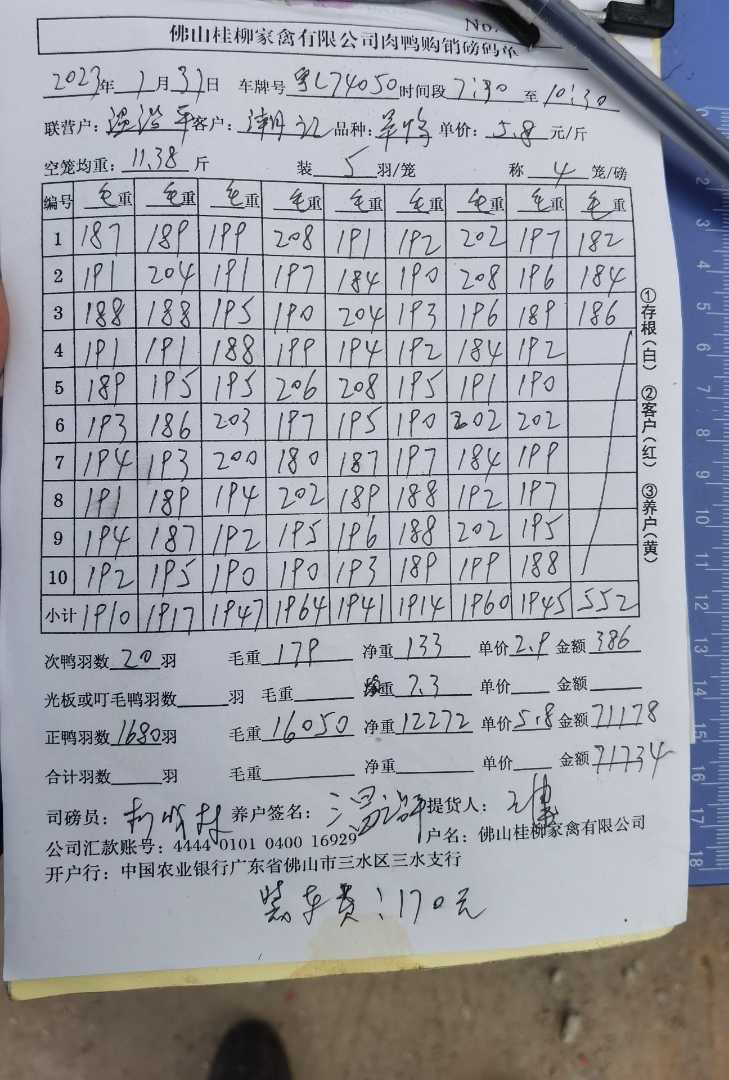 No.
佛山桂柳家禽有限公司肉鸭购销磅码单
2023年1月31日 车牌号 粤L74050 时间段 7:30 至 10:30
联营户: 客户: 潮记 品种: 单价: 5.8 元/斤
空笼均重: 11.38 斤 装 5 羽/笼 称 4 笼/磅
编号 毛重 毛重 毛重 毛重 毛重 毛重 毛重 毛重 毛重
1 187 189 199 208 191 192 202 197 182
2 191 204 191 197 184 190 208 196 184
3 188 188 195 190 204 193 196 189 186
4 191 191 188 199 194 192 184 192
5 189 195 195 206 208 195 191 190
6 193 186 203 197 195 190 202 202
7 194 193 200 180 187 197 184 199
8 191 189 194 202 189 188 192 197
9 194 187 192 195 196 188 202 195
10 192 195 190 190 193 189 199 188
小计 1910 1917 1947 1964 1941 1914 1960 1945 552
①存根(白) ②客户(红) ③养户(黄)
次鸭羽数 20 羽 毛重 179 净重 133 单价 2.9 金额 386
光板或叮毛鸭羽数 羽 毛重 重 7.3 单价 金额
正鸭羽数 1680 羽 毛重 16050 净重 12272 单价 5.8 金额 71178
合计羽数 羽 毛重 净重 单价 金额 71734
司磅员: 养户签名: 提货人:
公司汇款账号: 4444 0101 0400 16929 户名: 佛山桂柳家禽有限公司
开户行: 中国农业银行广东省佛山市三水区三水支行
装车费: 170元
2
3
4
5
6
7
8
9
10
11
12
13
14
15
16
17
18